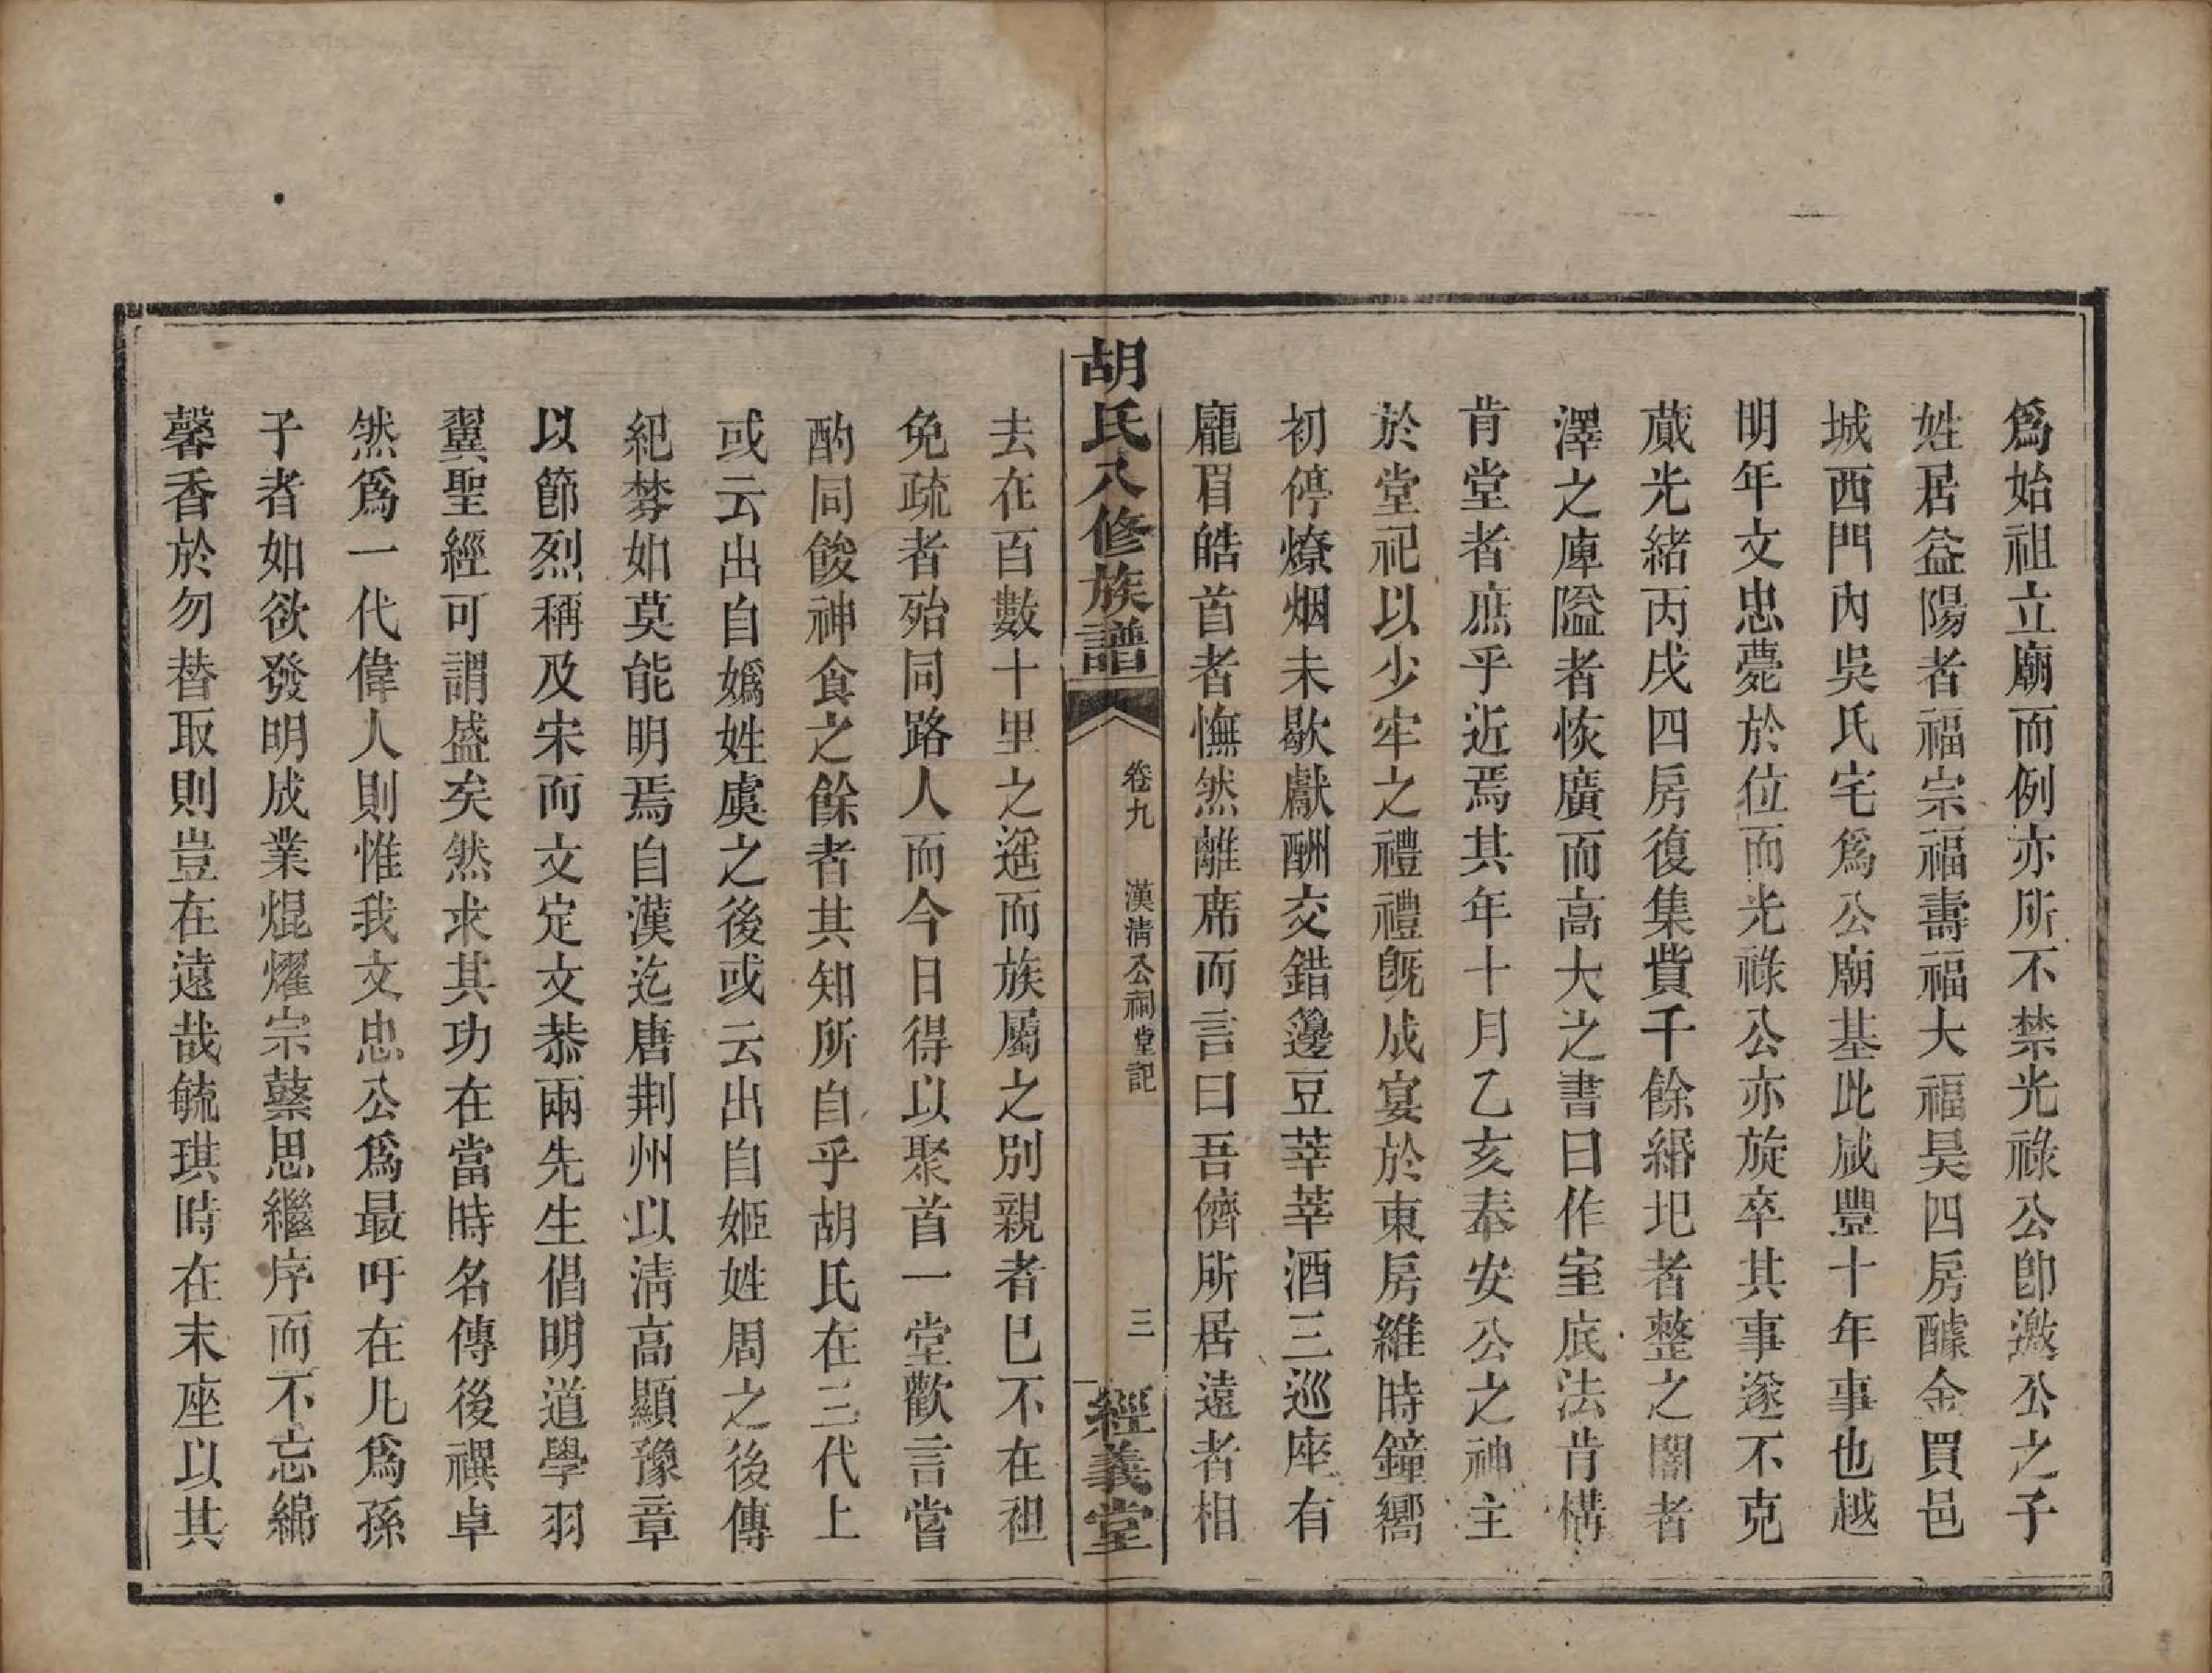 爲始祖立廟而例亦所不禁光祿公卽邀公之子
姓居益陽者福宗福壽福大福昊四房醵金買邑
城西門內吳氏宅爲公廟基此咸豐十年事也越
明年文忠薨於位而光祿公亦旋卒其事遂不克
蕆光緖丙戌四房復集貲千餘緡圯者整之闇者
澤之庫隘者恢廣而高大之書曰作室底法肯構
肯堂者庶乎近焉其年十月乙亥奉安公之神主
於堂祀以少牢之禮禮旣成宴於東房維時鐘嚮
初停燎烟未歇獻酬交錯籩豆莘莘酒三巡座有
龐眉皓首者憮然離席而言曰吾儕所居遠者相
胡氏八修族譜
卷九
漢淸公祠堂記
三
經義堂
去在百數十里之遥而族屬之別親者已不在袒
免疏者殆同路人而今日得以聚首一堂歡言嘗
酌同餕神食之餘者其知所自乎胡氏在三代上
或云出自嬀姓虞之後或云出自姬姓周之後傳
紀棼如莫能明焉自漢迄唐荆州以淸高顯豫章
以節烈稱及宋而文定文恭兩先生倡明道學羽
翼聖經可謂盛矣然求其功在當時名傳後禩卓
然爲一代偉人則惟我文忠公爲最吁在凡爲孫
子者如欲發明成業焜燿宗蓺思繼序而不忘綿
馨香於勿替取則豈在遠哉毓琪時在末座以其